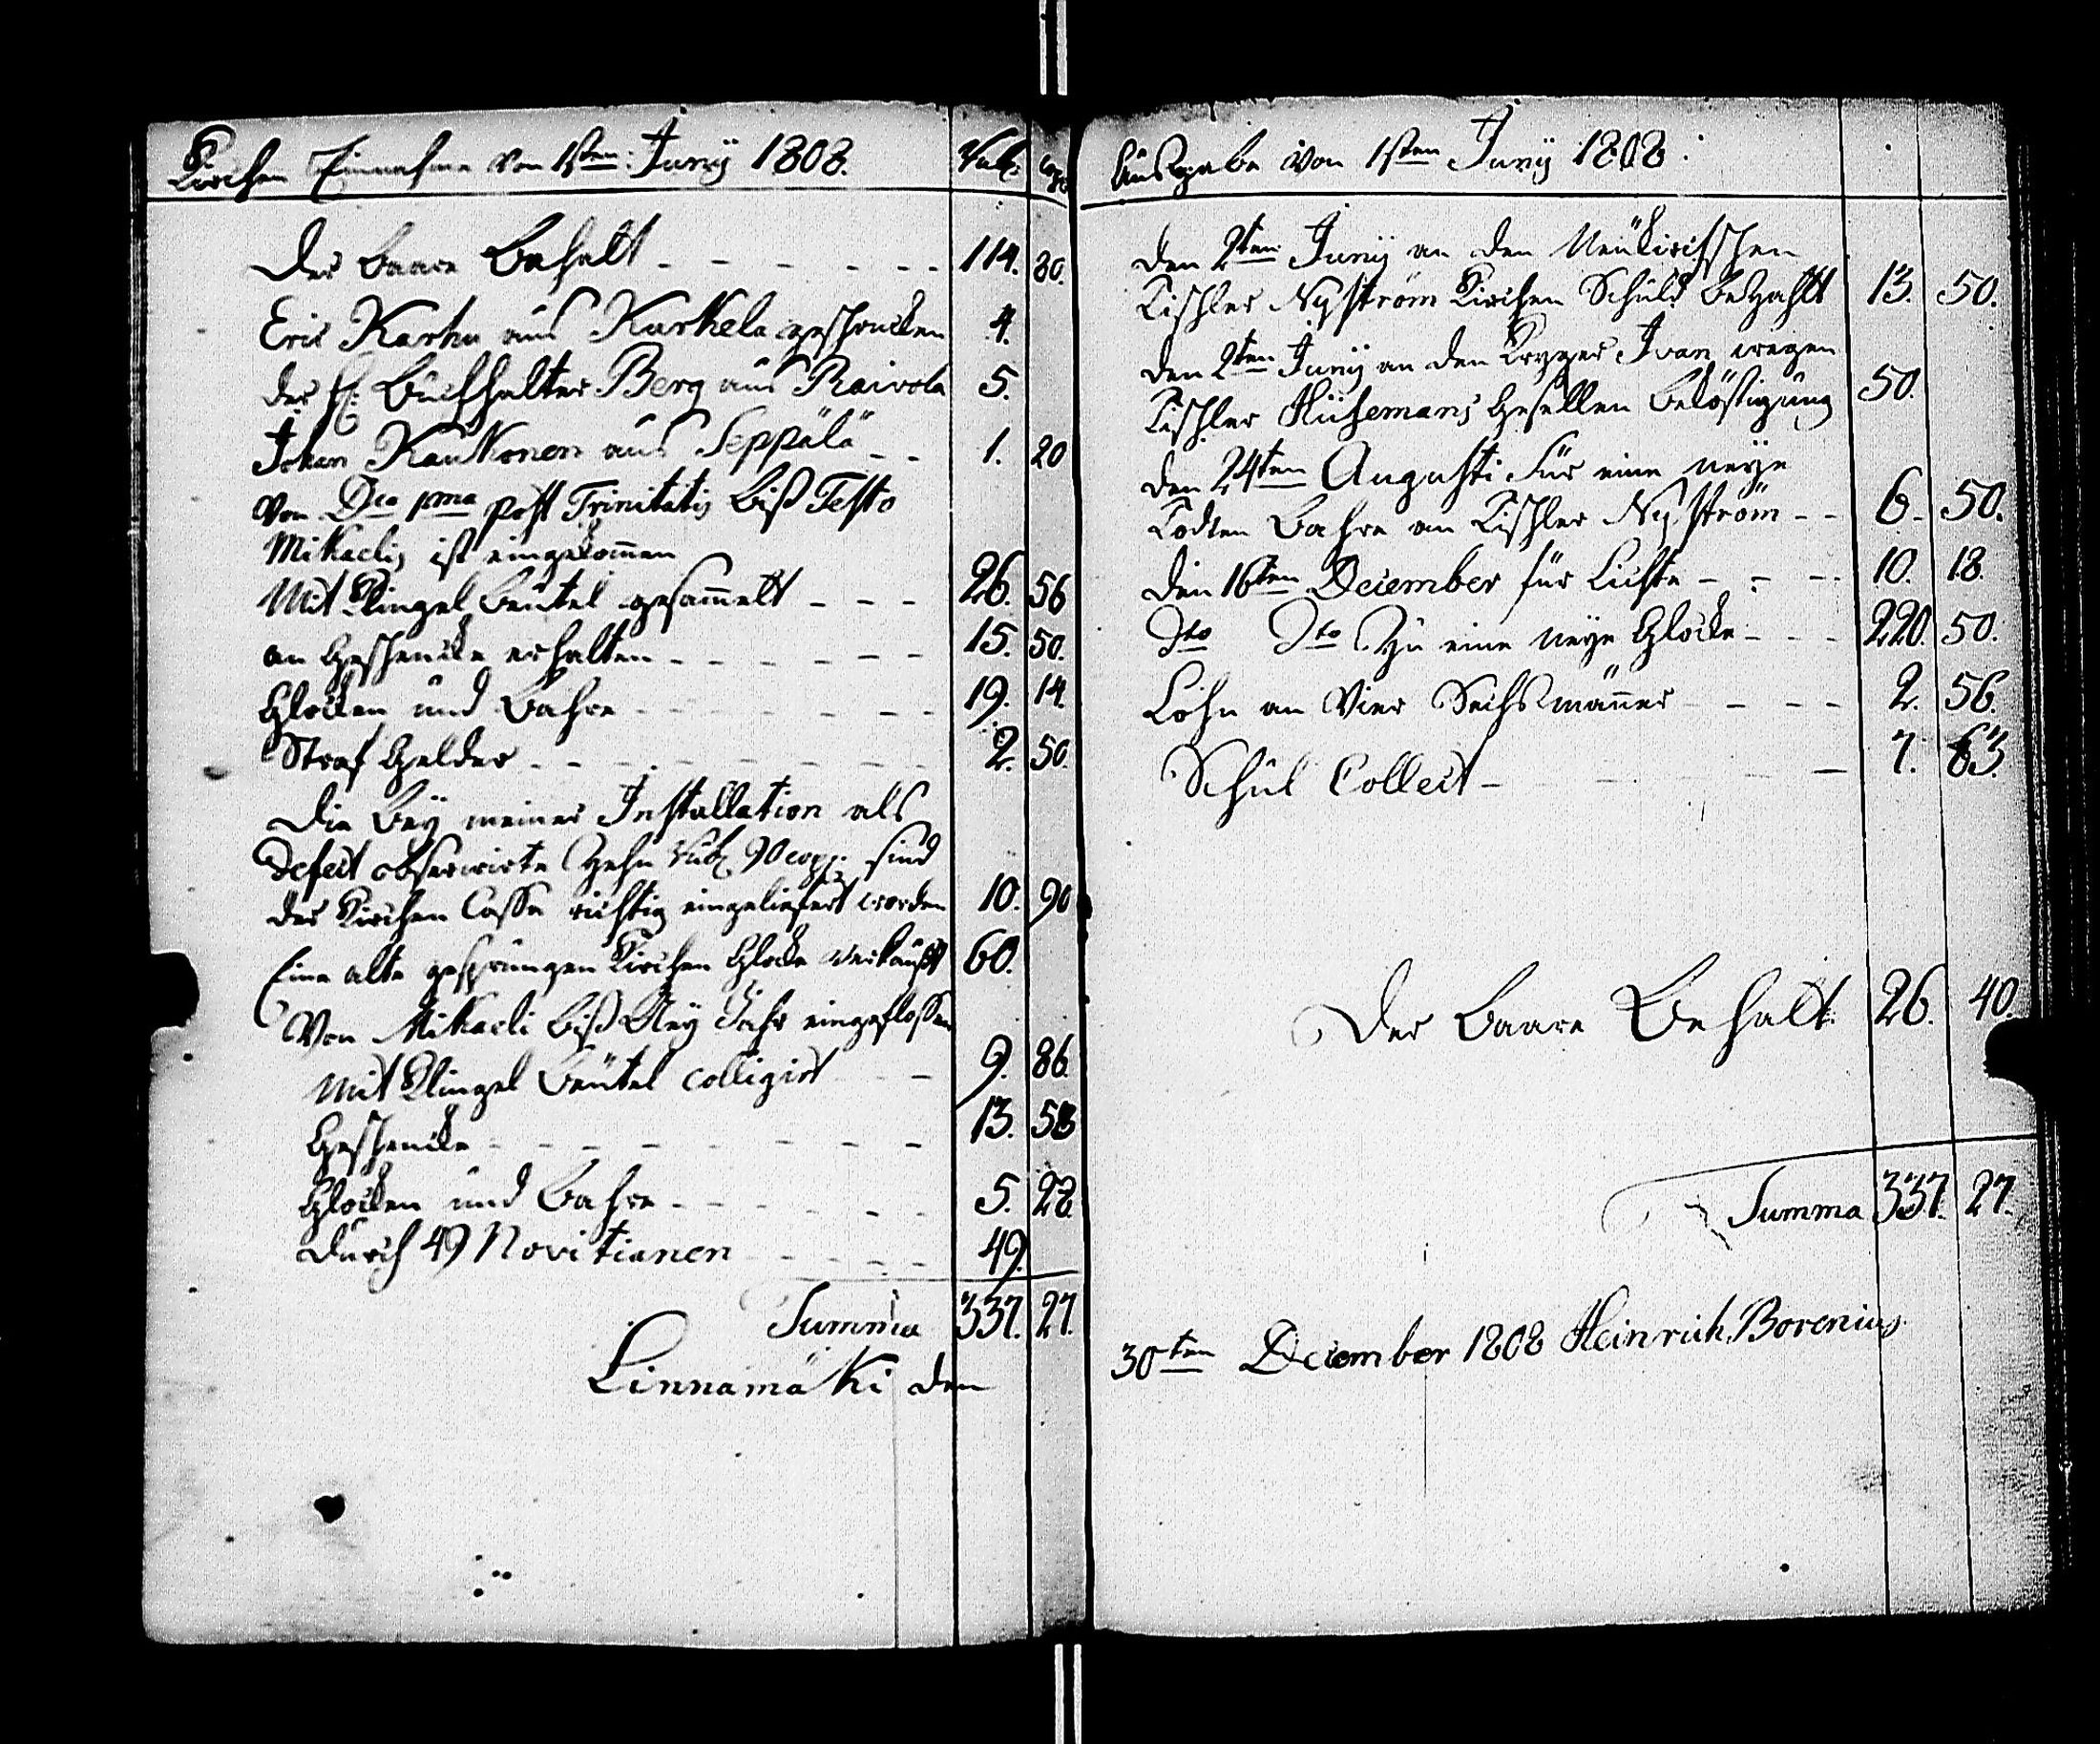 Kirchen Einnahme von 1sten Junij 1808. Rub. Cop.
Der baare Behalt 114. 80.
Eric Karhu aus Kurkela geschencken 4.
der H. Buchhalter Berg aus Raivola 5.
Johan Kaukonen aus Seppälä 1. 20
von Dca 1ma post Trinitatis biß Festo
Mikaelis ist eingekom̄en
Mit Klingel beutel gesam̄elt 26. 56
an Geschencke erhalten 15. 50.
Glocken und Bahre 19. 14.
Straf Gelder 2. 50.
Die bey meiner Installation als
Defect observirte Zehn Rub. 90 cop. sind
der Kirchen Cassa richtig eingeliefert worden 10. 90
Eine alte gesprungen Kirchen Glocke verkauft 60.
Von Mikaeli biß Ney Jahr eingeflossen
Mit Klingel beutel colligirt 9. 86.
Geschencke 13. 53
Glocken und Bahre 5. 28.
durch 49 Novitianen 49.
Summa 337. 27.
Linnamäki den
Ausgabe von 1sten Junij 1808.
den 2ten Junij an den Neükirchschen
Tischler Nyström Kirchen Schuld bezahlt 13. 50.
den 2ten Junij an den Ivan wegen
Tischler Gesellen beköstigung 50.
den 24ten Augusti für eine neye
Todten Bahre an Tischler Nyström 6. 50.
den 16ten December für Lichte 10. 18.
Dto Dto Zu eine neye Glocke 220. 50.
Lohn an vier Sechsmän̄er 2. 56.
Schul Collect 7. 63.
Der baare Behalt 26. 40.
Summa 337. 27.
30ten December 1808 Heinrich Borenius